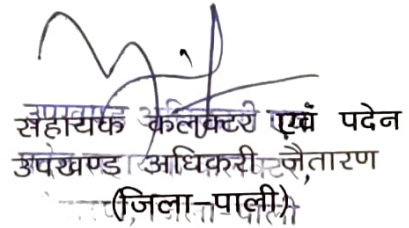 सहायक कलक्टर एवं पदेन
उपखण्ड अधिकरी जैतारण
(जिला-पाली)